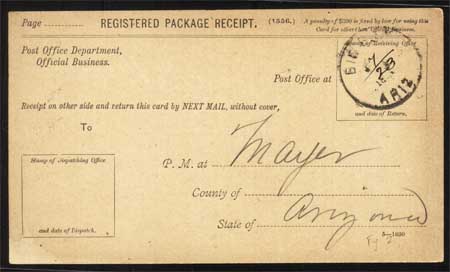 Page REGISTERED PACKAGE RECEIPT. (1556.) A penalty of $300 is fixed by law for using this
Card for other than Official Business.
Post Office Department,
Official Business.
Stamp of Receiving Office
Post Office at
ARIZ
and date of Return.
Receipt on other side and return this card by NEXT MAIL, without cover,
To
Stamp of Dispatching Office
and date of Dispatch.
P. M. at Mayer
County of
State of Arizona